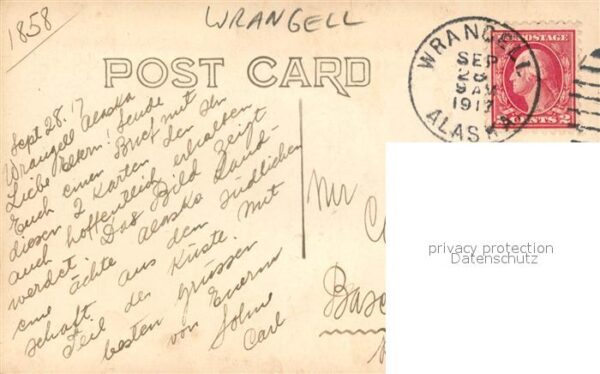 1858
WRANGELL
POST CARD
WRANGELL
SEP
28
9 AM
1917
ALASKA
POSTAGE
CENTS 2
Sept 28. 17
Wrangell Alaska
Liebe Eltern! Sende
Euch einen Brief mit
diesen 2 Karten den Ihr
auch hoffentlich erhalten
werdet. Das Bild zeigt
eine ächte Alaska Land-
schaft aus dem südlichen
Teil der Küste. Mit
besten grüssen
von Euerm
Sohne
Carl
Mr
Base
privacy protection
Datenschutz